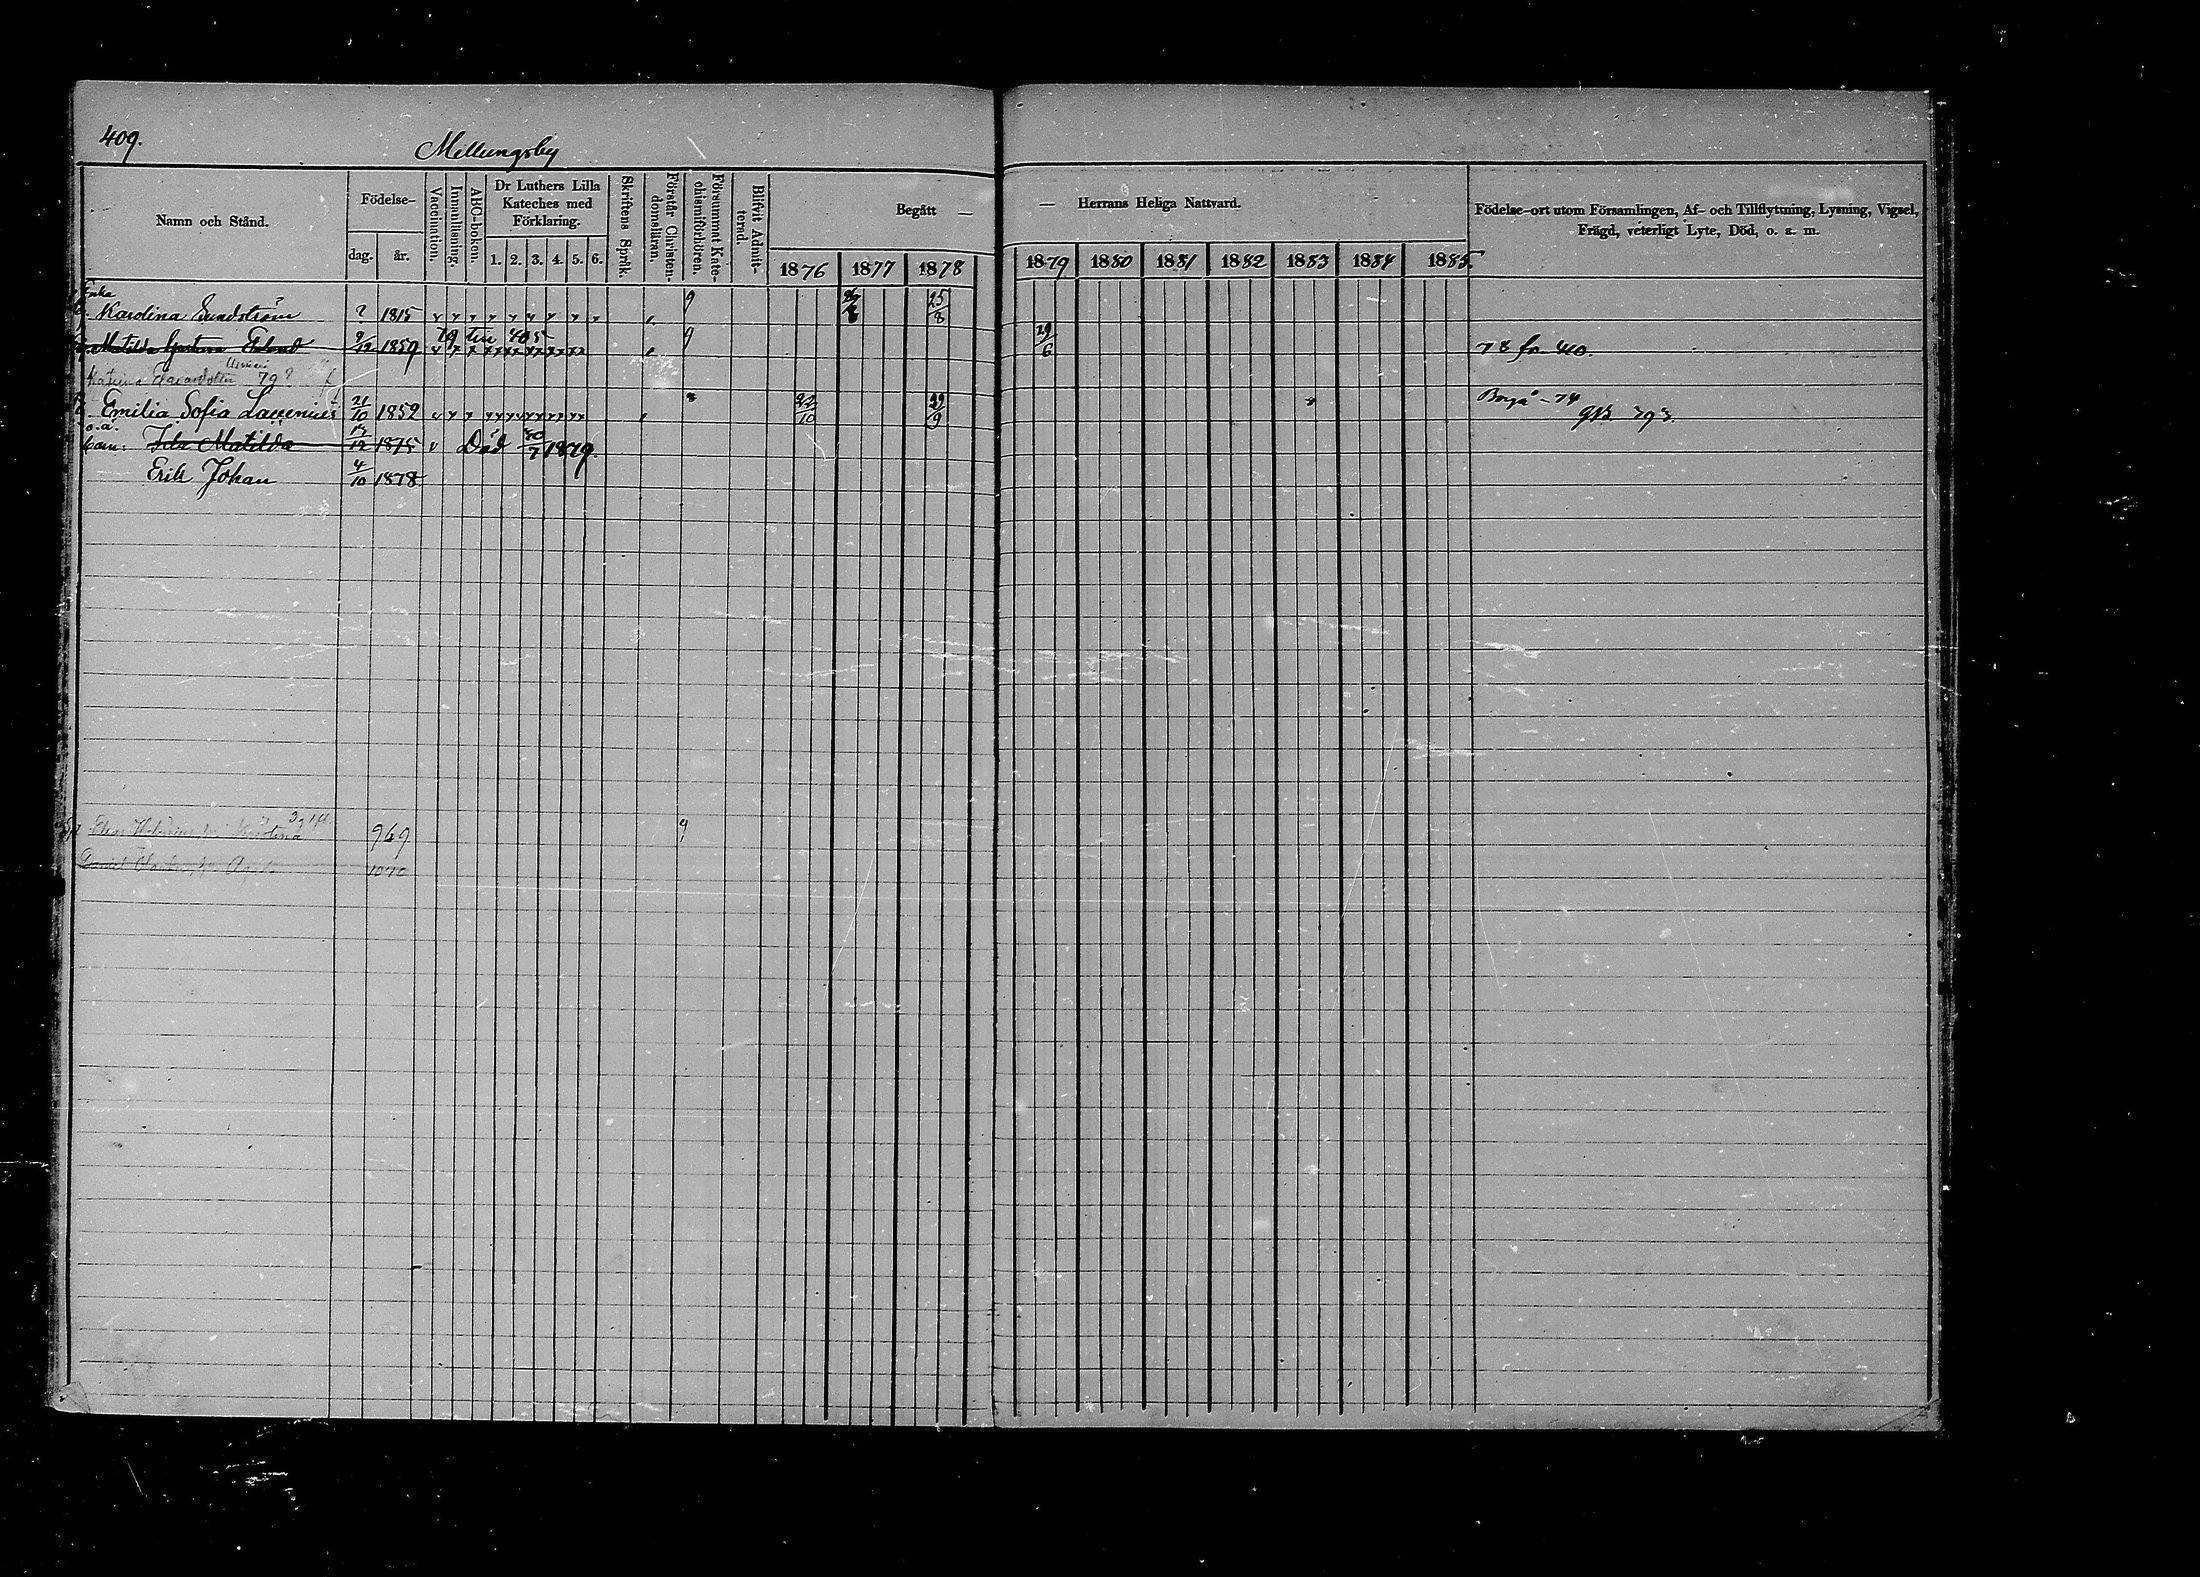 409.
Mellungsby
Namn och Stånd.
Födelse-
dag.
år.
Vaccination.
Innanläsning.
ABC-boken.
Dr Luthers Lilla
Kateches med
Förklaring.
1. 2. 3. 4. 5. 6.
Skriftens Språk.
Förstår Christen-
domsläran.
Försummat Kate-
chismiförhören.
Blifvit Admit-
terad.
Begått —
1876 1877 1878
— Herrans Heliga Nattvard.
1879 1880 1881 1882 1883 1884 1885
Födelse-ort utom Församlingen, Af- och Tillflyttning, Lysning, Vigsel,
Frägd, veterligt Lyte, Död, o. s. m.
Enka
Karolina Sundström ? 1815 9 25/8
79 till 405
Matilda Ekelund 9/12 1859 9 29/6 78 fr. 410.
Katrina 79?
Emilia Sofia Lavenius 21/10 1852 22/10 29/9 Borgå - 74
793.
o. ä.
barn: Ida Matilda 1875 Död 30/7 1879.
Erik Johan 4/10 1878
969 9
1070